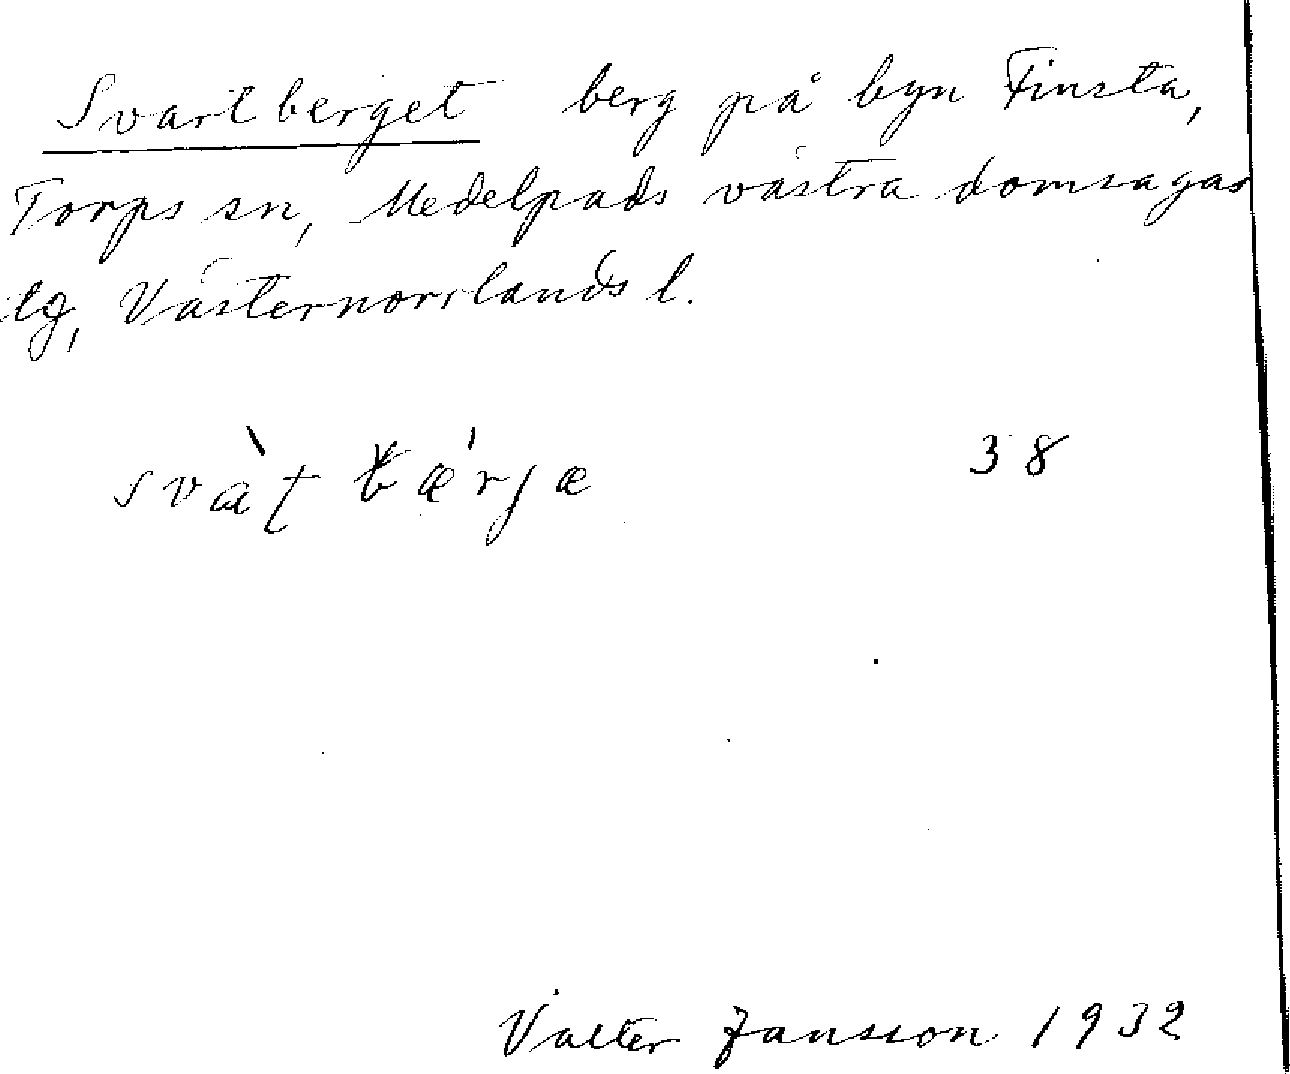 Svartberget berg på byn Finsta,
Torps sn, Medelpads västra domsagas
tg, Västernorrlands l.
svàṭ bǽrjæ 38
Valter Jansson 1932